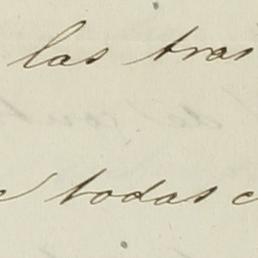 las tras
todas